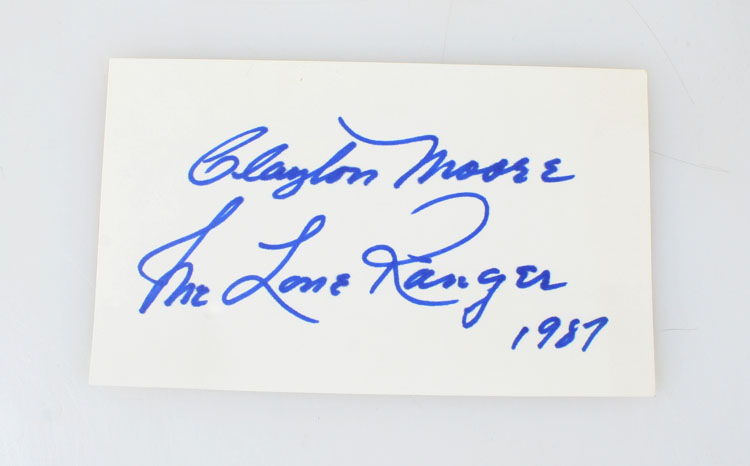 Clayton Moore
The Lone Ranger
1987